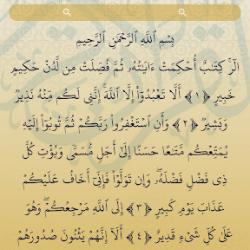 بِسْمِ ٱللَّهِ ٱلرَّحْمَٰنِ ٱلرَّحِيمِ
الٓرۚ كِتَٰبٌ أُحْكِمَتْ ءَايَٰتُهُۥ ثُمَّ فُصِّلَتْ مِن لَّدُنْ حَكِيمٍ
خَبِيرٍ ﴿١﴾ أَلَّا تَعْبُدُوٓا۟ إِلَّا ٱللَّهَۚ إِنَّنِى لَكُم مِّنْهُ نَذِيرٌ
وَبَشِيرٌ ﴿٢﴾ وَأَنِ ٱسْتَغْفِرُوا۟ رَبَّكُمْ ثُمَّ تُوبُوٓا۟ إِلَيْهِ
يُمَتِّعْكُم مَّتَٰعًا حَسَنًا إِلَىٰٓ أَجَلٍ مُّسَمًّى وَيُؤْتِ كُلَّ
ذِى فَضْلٍ فَضْلَهُۥۖ وَإِن تَوَلَّوْا۟ فَإِنِّىٓ أَخَافُ عَلَيْكُمْ
عَذَابَ يَوْمٍ كَبِيرٍ ﴿٣﴾ إِلَى ٱللَّهِ مَرْجِعُكُمْۖ وَهُوَ
عَلَىٰ كُلِّ شَىْءٍ قَدِيرٌ ﴿٤﴾ أَلَآ إِنَّهُمْ يَثْنُونَ صُدُورَهُمْ